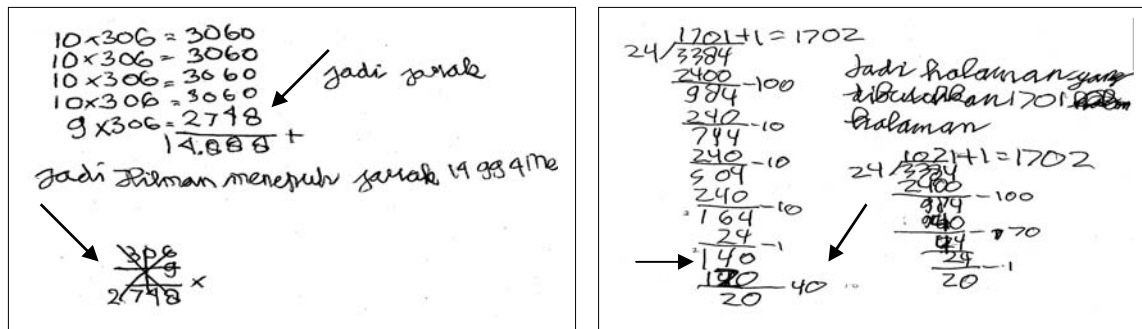 10×306=3060
10×306=3060
10×306=3060
10×306=3060
9×306=2748
14.888 +
Jadi jarak
Jadi Hilman menempuh jarak 14 994 Me
306
9
2.748 ×
1701+1=1702
24/3384
2400 -100
984
240 -10
744
240 -10
504
240 -10
164
24 -1
140
120 40
20
Jadi halaman yang
dibutuhkan 1701
halaman
1021+1=1702
24/3384
2400 -100
984
-70
24 -1
20